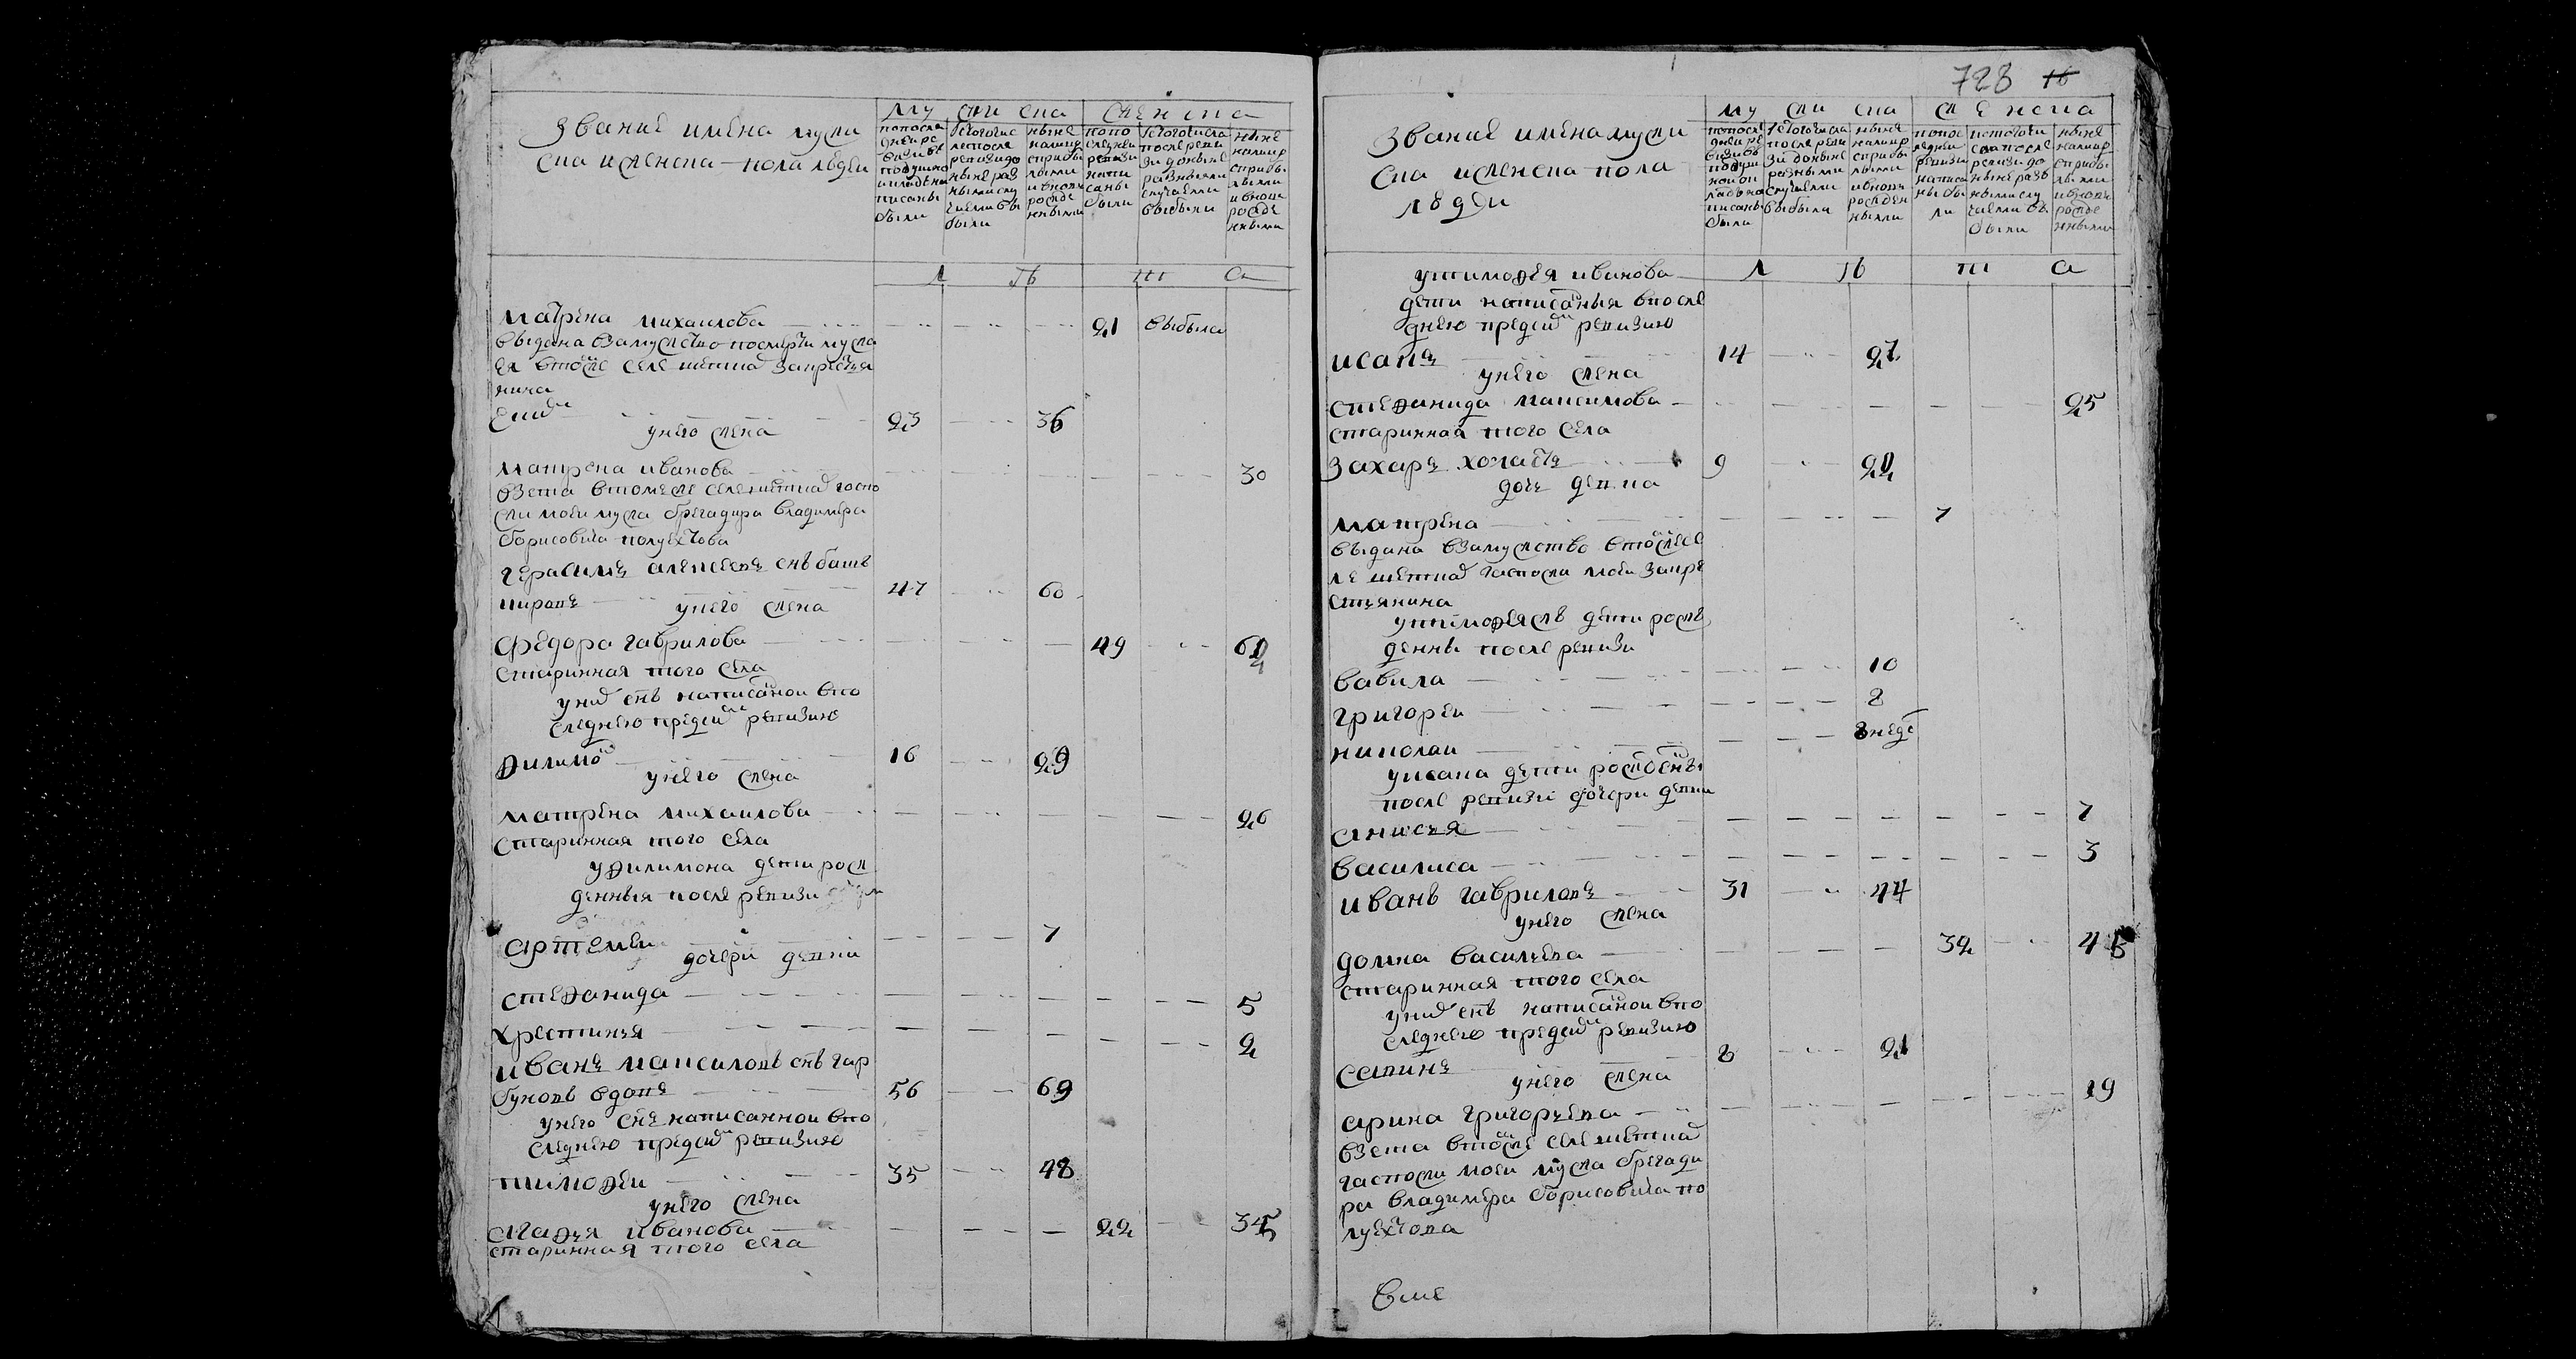 звание имена мужи
ска и женска пола людеи
му жи ска
женска
попосле
днеи ре
визи в
подушно
м окладе на
писаны
были
ис того чис
ла после
ревизи до
ныне раз
ными слу
чаеми вы
были
ныне
на лицо
с прибы
лыми
и вновь
рожде
нными
по по
следнеи
ревизи
напи
саны
были
ис того числа
после реви
зи до ныне
разными
случаеми
выбыли
ныне
на лицо
с прибы
лыми
и внов
рожде
нными
л
въ
т
а
матрена михаилова 21 выбыла
выдана взамужство посмерти мужа
ея втом же селе шеткад за крестья
нина
23 36
у него жена
матрена иванова 30
взета втом же селе шеткад госпо
жи моеи мужа брегадира владимера
борисовича полуехтова
герасимъ алексеевъ снъ баш
кировъ 47 60
у него жена
федора гаврилова 49 62
старинная того села
у них снъ написанои впо
следнею пред сим ревизию
филимон 16 29
у него жена
матрена михаилова 26
старинная того села
у филимона дети рож
денныя после ревизи
артемеи 7
дочери девки
стефанида 5
хрестинья 2
иванъ максимовъ снъ гар
буновъ вдовъ 56 69
у него снъ написаннои впо
следнею пред сим ревизию
тимофеи 35 48
у него жена
агафья иванова 22 35
старинная того села
728 16
звание имена мужи
ска и женска пола
людеи
му жи ска
женска
попосле
днеи ре
визи в
подуш
ном ок
ладе на
писаны
были
ис того числа
после реви
зи до ныне
разными
случаеми
выбыли
ныне
на лицо
с прибы
лыми
и вновь
рожден
ными
по пос
ледней
ревизи
написа
ны бы
ли
ис того чи
сла после
ревизи до
ныне разъ
ными слу
чаеми вы
были
ныне
на лицо
с прибы
лыми
и вновь
рожде
нными
у тимофея иванова
л
въ
т
а
дети написаныя впосле
днею пред сим ревизию
исакъ 14 27
у него жена
стефанида максимова 25
стариннай того села
захаръ холастъ 9 22
дочь девка
матрена 7
выдана взамужство втом же се
ле шеткад госпожи моеи за кре
стьянина
у тимофея ж дети рож
денны после ревизи
вавила 10
григореи 8
николаи 8 неде
у исака дети рожденны
после ревизи дочери девки
анисья 7
василиса 3
иванъ гавриловъ 31 44
у него жена
домна васильева 32 45
старинная того села
у них снъ написанои впо
следнею пред сим ревизию
савинъ 8 21
у него жена
арина григорьева 19
взета втом же селе шеткад
госпожи моеи мужа брегади
ра владимера борисовича по
луехтова